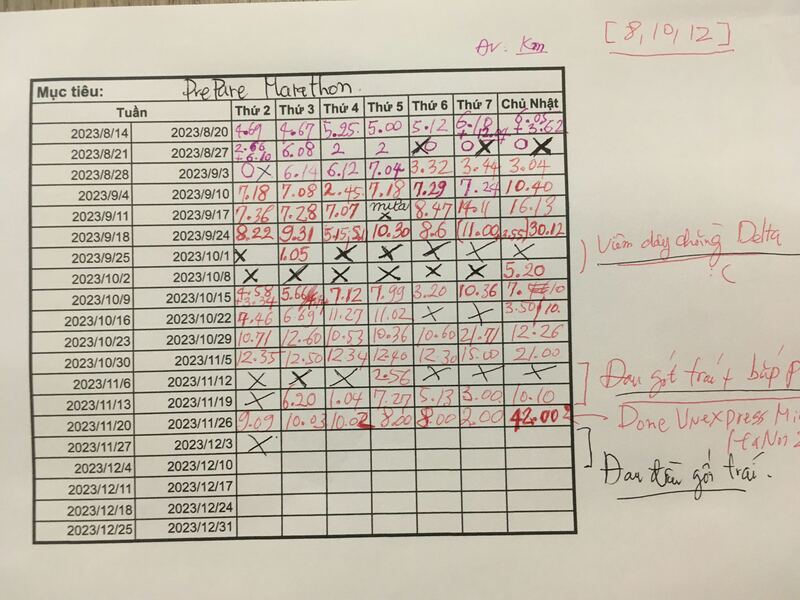 Av. Km
[8, 10, 12]
Mục tiêu: PrePare Marathon.
Tuần Thứ 2 Thứ 3 Thứ 4 Thứ 5 Thứ 6 Thứ 7 Chủ Nhật
2023/8/14 2023/8/20 4.69 4.67 5.25 5.00 5.12 6.10 6.03 + 3.62
2023/8/21 2023/8/27 2.66 + 6.10 6.08 2 2 X0 0X 0X
2023/8/28 2023/9/3 0X 6.14 6.12 7.04 3.32 3.44 3.04
2023/9/4 2023/9/10 7.18 7.08 2.45 7.18 7.29 7.24 10.40
2023/9/11 2023/9/17 7.36 7.28 7.07 mưa X 8.47 14.11 16.13
2023/9/18 2023/9/24 8.22 9.31 10.30 8.6 (11.00 30.12
2023/9/25 2023/10/1 X 1.05 X X X X X
) Viêm dây chằng Delta
:(
2023/10/2 2023/10/8 X X X X X X 5.20
2023/10/9 2023/10/15 4.58 + 3.34 5.66 7.12 7.99 3.20 10.36
2023/10/16 2023/10/22 7.46 6.69 11.27 11.02 X X 3.50/10.
2023/10/23 2023/10/29 10.71 12.60 10.53 10.36 10.60 21.71 12.26
2023/10/30 2023/11/5 12.35 12.50 12.34 12.40 12.30 15.00 21.00
2023/11/6 2023/11/12 X X X 2.56 X X X
] Đau gót trái + bắp
2023/11/13 2023/11/19 X 6.20 1.04 7.27 5.13 3.00 10.10
2023/11/20 2023/11/26 9.09 10.03 10.02 8.00 8.00 2.00 42.00
Done VNexpress
HaNoi
2023/11/27 2023/12/3 X
] Đau đầu gối trái.
2023/12/4 2023/12/10
2023/12/11 2023/12/17
2023/12/18 2023/12/24
2023/12/25 2023/12/31